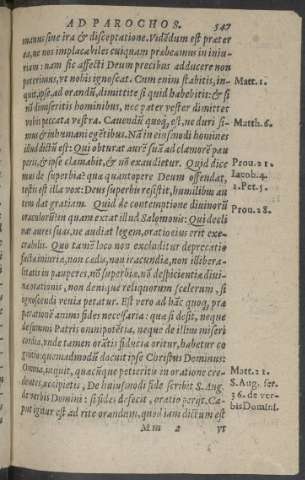 AD PAROCHOS. 547
manus sine ira & disceptatione. Vidēdum est prater
ea, ne nos implacabiles cuiquam præbeamus in iniu-
riam: nam sic affecti Deum precibus adducere non
poterimus, vt nobis ignoscat. Cum enim stabitis, in-
quit, ipse, ad orandū, dimittite si quid habebitis: & si
nō dimiseritis hominibus, nec pater vester dimittet
vobis peccata vestra. Cauendū quoq, est, ne duri si-
mus & inhumani egētibus. Nā in eiusmodi homines
illud dictū est: Qui obturat aurē suā ad clamorē pau
peris, & ipse clamabit, & nō exaudietur. Quid dice
mus de superbia? quæ quantopere Deum offendat,
testis est illa vox: Deus superbis resistit, humilibus au
tem dat gratiam. Quid de contemptione diuinorū
oraculorū? in quam extat illud Salomonis: Qui decli
nat aures suas, ne audiat legem, oratio eius erit exe-
crabilis. Quo tamē loco non excluditur deprecatio
factæ iniuriæ, non cædis, non iracundiæ, non illibera-
litatis in pauperes, nō superbiæ, nō despicientiæ diui-
næ orationis, non denique reliquorum scelerum, si
ignoscendi venia petatur. Est vero ad hāc quoq, præ
parationē animi fides necessaria: quæ si desit, neque
de summi Patris omnipotētia, neque de illius miseri
cordia, vnde tamen orātis fiducia oritur, habetur co
gnitio: quemadmodū docuit ipse Christus Dominus:
Omnia, inquit, quæcūque petieritis in oratione cre-
dentes, accipietis, De huiusmodi fide scribit S. Aug.
de verbis Domini: si fides defecit, oratio perijt. Ca-
put igitur est ad rite orandum, quod iam dictum est
Mm 2 vt
Matt. 1.
Matth. 6.
Prou. 21.
Iacob. 4.
1. Pet. 5.
Prou. 28.
Matt. 21.
S. Aug. ser.
36. de ver-
bis Domini.